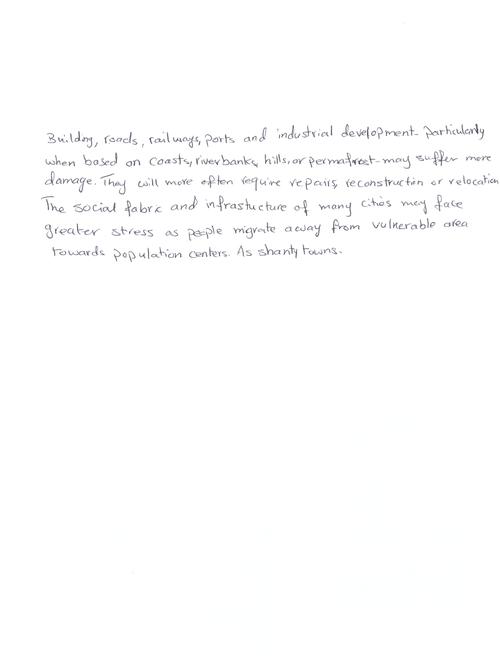 Buildng, roads, railways, ports and industrial development- particularly
when based on coasts, riverbanks, hills, or permafrost- may suffer more
damage. They will more often require repairs, reconstruction or relocation
The social fabric and infrastucture of many cities may face
greater stress as people migrate away from vulnerable area
towards population centers. As shanty towns.